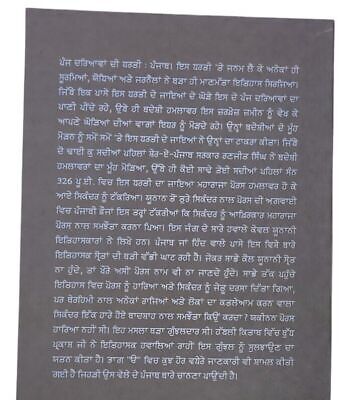 ਪੰਜ ਦਰਿਆਵਾਂ ਦੀ ਧਰਤੀ : ਪੰਜਾਬ। ਇਸ ਧਰਤੀ 'ਤੇ ਜਨਮ ਲੈ ਕੇ ਅਨੇਕਾਂ ਹੀ
ਸੂਰਮਿਆਂ, ਯੋਧਿਆਂ ਅਤੇ ਜਰਨੈਲਾਂ ਨੇ ਬੜਾ ਹੀ ਮਾਣਮੱਤਾ ਇਤਿਹਾਸ ਸਿਰਜਿਆ।
ਜਿੱਥੇ ਇਕ ਪਾਸੇ ਇਸ ਧਰਤੀ ਦੇ ਜਾਇਆਂ ਦੇ ਘੋੜੇ ਇਸ ਦੇ ਪੰਜ ਦਰਿਆਵਾਂ ਦਾ
ਪਾਣੀ ਪੀਂਦੇ ਰਹੇ, ਉਥੇ ਹੀ ਬਦੇਸ਼ੀ ਹਮਲਾਵਰ ਇਸ ਜ਼ਰਖ਼ੇਜ਼ ਜ਼ਮੀਨ ਨੂੰ ਵੇਖ ਕੇ
ਆਪਣੇ ਘੋੜਿਆਂ ਦੀਆਂ ਵਾਗਾਂ ਇਧਰ ਨੂੰ ਮੋੜਦੇ ਰਹੇ। ਉਨ੍ਹਾਂ ਬਦੇਸ਼ੀਆਂ ਦੇ ਮੂੰਹ
ਮੋੜਨ ਨੂੰ ਸਮੇਂ ਸਮੇਂ 'ਤੇ ਇਸ ਧਰਤੀ ਦੇ ਜਾਇਆਂ ਨੇ ਉਨ੍ਹਾਂ ਦਾ ਟਾਕਰਾ ਕੀਤਾ। ਜਿੱਥੇ
ਦੋ ਢਾਈ ਕੁ ਸਦੀਆਂ ਪਹਿਲਾਂ ਸ਼ੇਰ-ਏ-ਪੰਜਾਬ ਸਰਕਾਰ ਰਣਜੀਤ ਸਿੰਘ ਨੇ ਬਦੇਸ਼ੀ
ਹਮਲਾਵਰਾਂ ਦਾ ਮੂੰਹ ਮੋੜਿਆ, ਉੱਥੇ ਹੀ ਕੋਈ ਸਾਢੇ ਤੇਈ ਸਦੀਆਂ ਪਹਿਲਾਂ ਸੰਨ
326 ਪੂ.ਈ. ਵਿਚ ਇਸ ਧਰਤੀ ਦਾ ਜਾਇਆ ਮਹਾਰਾਜਾ ਪੋਰਸ ਹਮਲਾਵਰ ਹੋ ਕੇ
ਆਏ ਸਿਕੰਦਰ ਨੂੰ ਟੱਕਰਿਆ। ਯੂਨਾਨ ਤੋਂ ਤੁਰੇ ਸਿਕੰਦਰ ਨਾਲ ਪੋਰਸ ਦੀ ਅਗਵਾਈ
ਵਿਚ ਪੰਜਾਬੀ ਫ਼ੌਜਾਂ ਇਸ ਤਰ੍ਹਾਂ ਟੱਕਰੀਆਂ ਕਿ ਸਿਕੰਦਰ ਨੂੰ ਆਖ਼ਿਰਕਾਰ ਮਹਾਰਾਜਾ
ਪੋਰਸ ਨਾਲ ਸਮਝੌਤਾ ਕਰਨਾ ਪਿਆ। ਇਸ ਜੰਗ ਦੇ ਸਾਰੇ ਹਵਾਲੇ ਕੇਵਲ ਯੂਨਾਨੀ
ਇਤਿਹਾਸਕਾਰਾਂ ਨੇ ਲਿਖੇ ਹਨ। ਪੰਜਾਬ ਜਾਂ ਹਿੰਦ ਵਾਲੇ ਪਾਸੇ ਇਸ ਵਿਸ਼ੇ ਬਾਰੇ
ਇਤਿਹਾਸਕ ਸ੍ਰੋਤਾਂ ਦੀ ਬੜੀ ਵੱਡੀ ਘਾਟ ਰਹੀ ਹੈ। ਜੇਕਰ ਸਾਡੇ ਕੋਲ ਯੂਨਾਨੀ ਸ੍ਰੋਤ
ਨਾ ਹੁੰਦੇ, ਤਾਂ ਪੋਰੋਂ ਅਸੀਂ ਪੋਰਸ ਨਾਮ ਵੀ ਨਾ ਜਾਣਦੇ ਹੁੰਦੇ। ਸਾਡੇ ਤੱਕ ਪਹੁੰਚੇ
ਇਤਿਹਾਸ ਵਿਚ ਪੋਰਸ ਨੂੰ ਹਾਰਿਆ ਅਤੇ ਸਿਕੰਦਰ ਨੂੰ ਜੇਤੂ ਦਰਸਾ ਦਿੱਤਾ ਗਿਆ,
ਪਰ ਬੇਰਹਿਮੀ ਨਾਲ ਅਨੇਕਾਂ ਰਾਜਿਆਂ ਅਤੇ ਲੋਕਾਂ ਦਾ ਕਤਲੇਆਮ ਕਰਨ ਵਾਲਾ
ਸਿਕੰਦਰ ਇੱਕ ਹਾਰੇ ਹੋਏ ਬਾਦਸ਼ਾਹ ਨਾਲ ਸਮਝੌਤਾ ਕਿਉਂ ਕਰਦਾ ? ਯਕੀਨਨ ਪੋਰਸ
ਹਾਰਿਆ ਨਹੀਂ ਸੀ। ਇਹ ਮਸਲਾ ਬੜਾ ਗੁੰਝਲਦਾਰ ਸੀ। ਹੱਥਲੀ ਕਿਤਾਬ ਵਿੱਚ ਬੁੱਧ
ਪ੍ਰਕਾਸ਼ ਜੀ ਨੇ ਇਤਿਹਾਸਕ ਹਵਾਲਿਆਂ ਰਾਹੀਂ ਇਸ ਗੁੰਝਲ ਨੂੰ ਸੁਲਝਾਉਣ ਦਾ
ਯਤਨ ਕੀਤਾ ਹੈ। ਭਾਗ "ੳ" ਵਿਚ ਕੁਝ ਹੋਰ ਵਧੇਰੇ ਜਾਣਕਾਰੀ ਵੀ ਸ਼ਾਮਲ ਕੀਤੀ
ਗਈ ਹੈ ਜਿਹੜੀ ਉਸ ਵੇਲੇ ਦੇ ਪੰਜਾਬ ਬਾਰੇ ਚਾਨਣਾ ਪਾਉਂਦੀ ਹੈ।